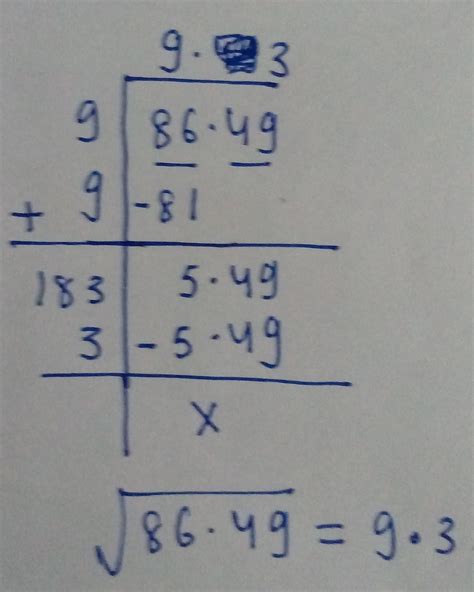 9.3
9 86.49
+ 9 -81
183 5.49
3 -5.49
x
√86.49 = 9.3